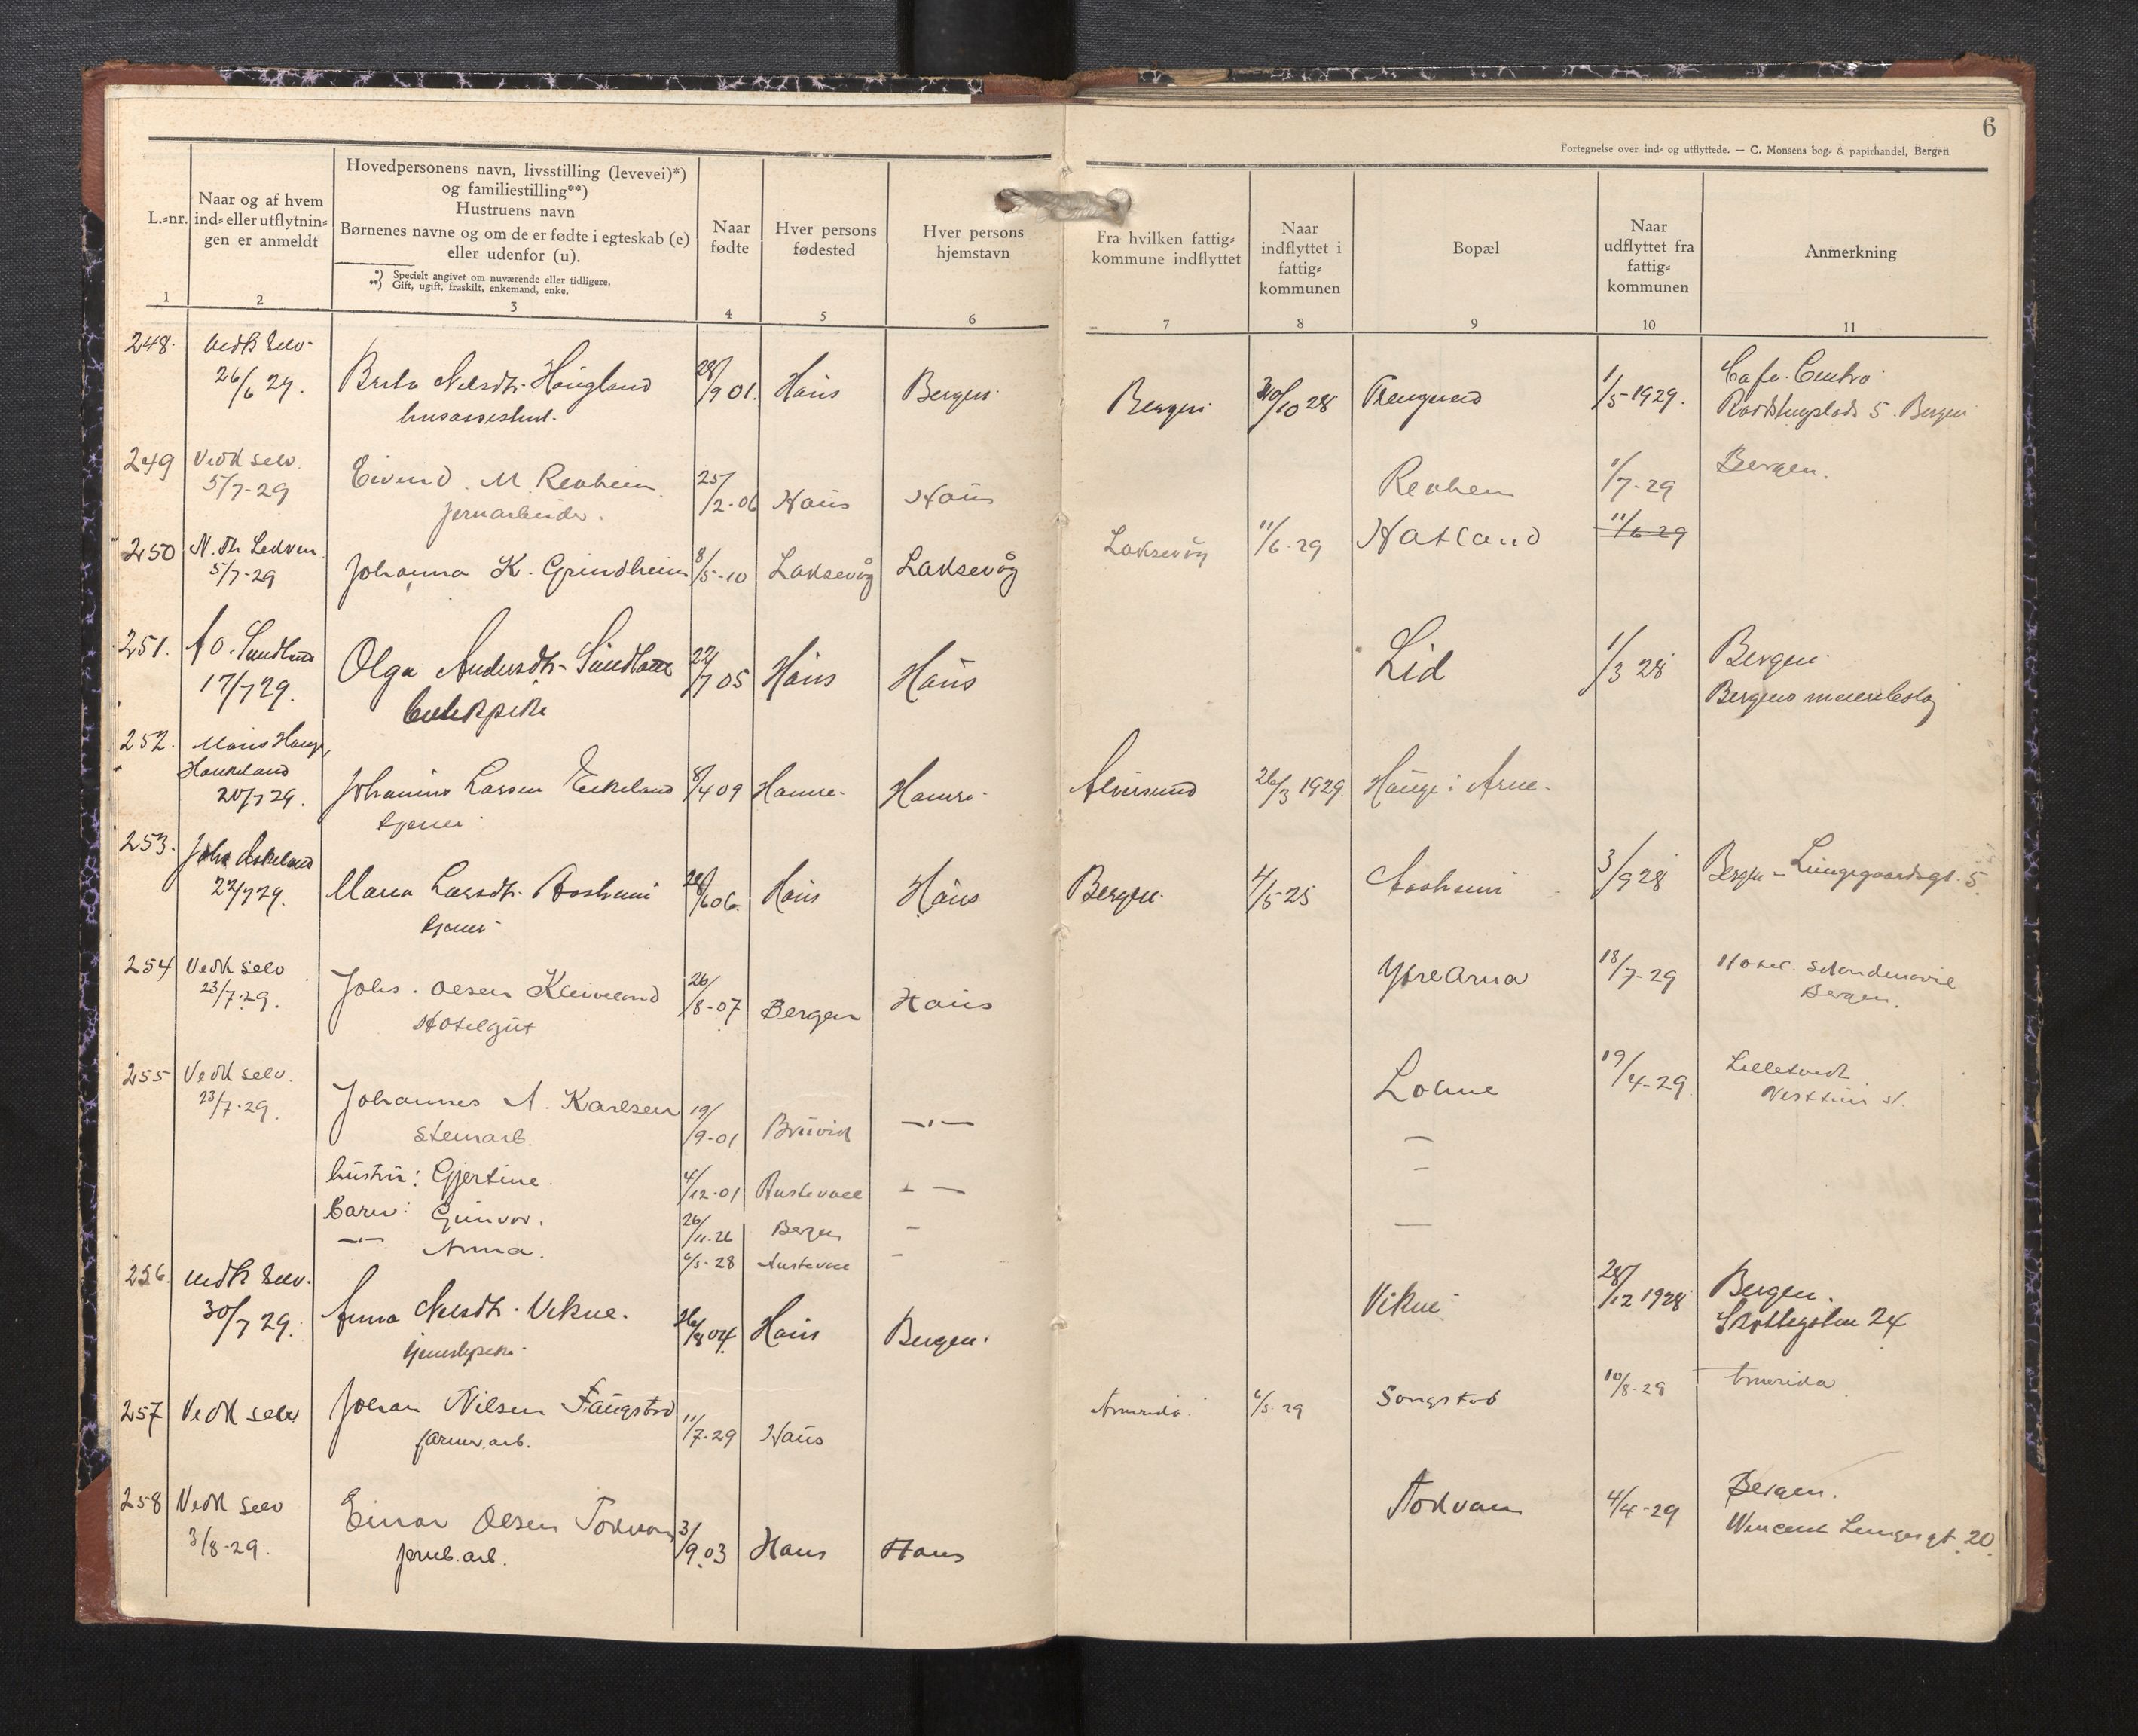 6
Fortegnelse over ind- og utflyttede. — C. Monsens bog- & papirhandel, Bergen
L.-nr.
Naar og af hvem
ind- eller utflytnin-
gen er anmeldt
Hovedpersonens navn, livsstilling (levevei)*)
og familiestilling**)
Hustruens navn
Børnenes navne og om de er fødte i egteskab (e)
eller udenfor (u).
*) Specielt angivet om nuværende eller tidligere.
**) Gift, ugift, fraskilt, enkemand, enke.
Naar
fødte
Hver persons
fødested
Hver persons
hjemstavn
Fra hvilken fattig-
kommune indflyttet
Naar
indflyttet i
fattig-
kommunen
Bopæl
Naar
udflyttet fra
fattig-
kommunen
Anmerkning
1 2 3 4 5 6 7 8 9 10 11
248. Vedk selv
26/6 29. Brita Nilsdtr. Haugland 28/9 01. Haus Bergen. Bergen 30/10 28 1/5-1929. Cafe Centro
5. Bergen
249 Vedk selv. Bergen.
5/7-29 Eivind M. Revheim 25/2-06 Haus Haus Revheim 1/7-29
jernarbeider.
250 N. Th Ledven 11/6-29
5/7-29 Johanna K. Grindheim 8/5-10 Laksevåg Laksevåg Laksevåg 11/6-29 Hatland
251. A O. Sundland
17/7 29. Olga Andersdtr. Sundland 22/7 05 Haus Haus Lid 1/3 28 Bergen.
butikpike Bergens meieribolag
252. Hauge,
Haukeland
20/7 29. Johannes Larsen Eikeland 8/4 09 Hamre. Hamre. Alversund 26/3 1929. Hauge i Arne.
tjener
253. Johs Askeland
22/7 29. Maria Larsdtr. Aasheim 28/6 06. Haus Haus Bergen. 4/5-25 Aasheim 3/9 28 Bergen - Lungegaardsgt. 5.
tjener
254 Vedk selv Hotel Skandinavie
23/7-29. Johs. Olsen Kleiveland 26/8-07 Bergen Haus Ytre Arna 18/7-29 Bergen.
Hotelgut
255 Vedk selv. Lilletvedt
23/7-29. Johannes A. Karlsen 19/9-01 Bruvik —"— Lone 19/4-29 Nesttun st.
steinarb. —
hustru: Gjertine. 4/12-01 Austevoll " — —
barn: Gunvor. 26/11-26 Bergen — —
—"— Anna. 6/5-28 Austevoll —
256. Vedk selv.
30/7 29. Anna Nilsdtr. Vikne. 26/8 04. Haus Bergen. Vikne 28/12 1928 Bergen.
tjenestepike Skottegaten 24
257 Vedk selv Johan Nilsen Faugstad 11/7-29 Haus Amerika. 6/5-29 Songstad 10/8-29 Amerika
farmarb.
258 Vedk selv Bergen.
3/8-29. Einar Olsen Tokvam 3/9.03 Haus Haus Tokvam 4/4-29 Wincent Lungesgt. 20.
jernb.arb.